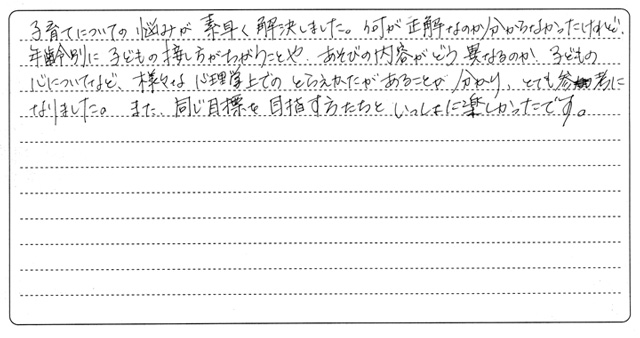 子育てについての悩みが素早く解決しました。何が正解なのか分からなかったけれど、
年齢別に子どもの接し方がちがうことや、あそびの内容がどう異なるのか、子どもの
心についてなど、様々な心理学上でのとらえかたがあることが分かり、とても参考に
なりました。また、同じ目標を目指す方たちといっしょに楽しかったです。